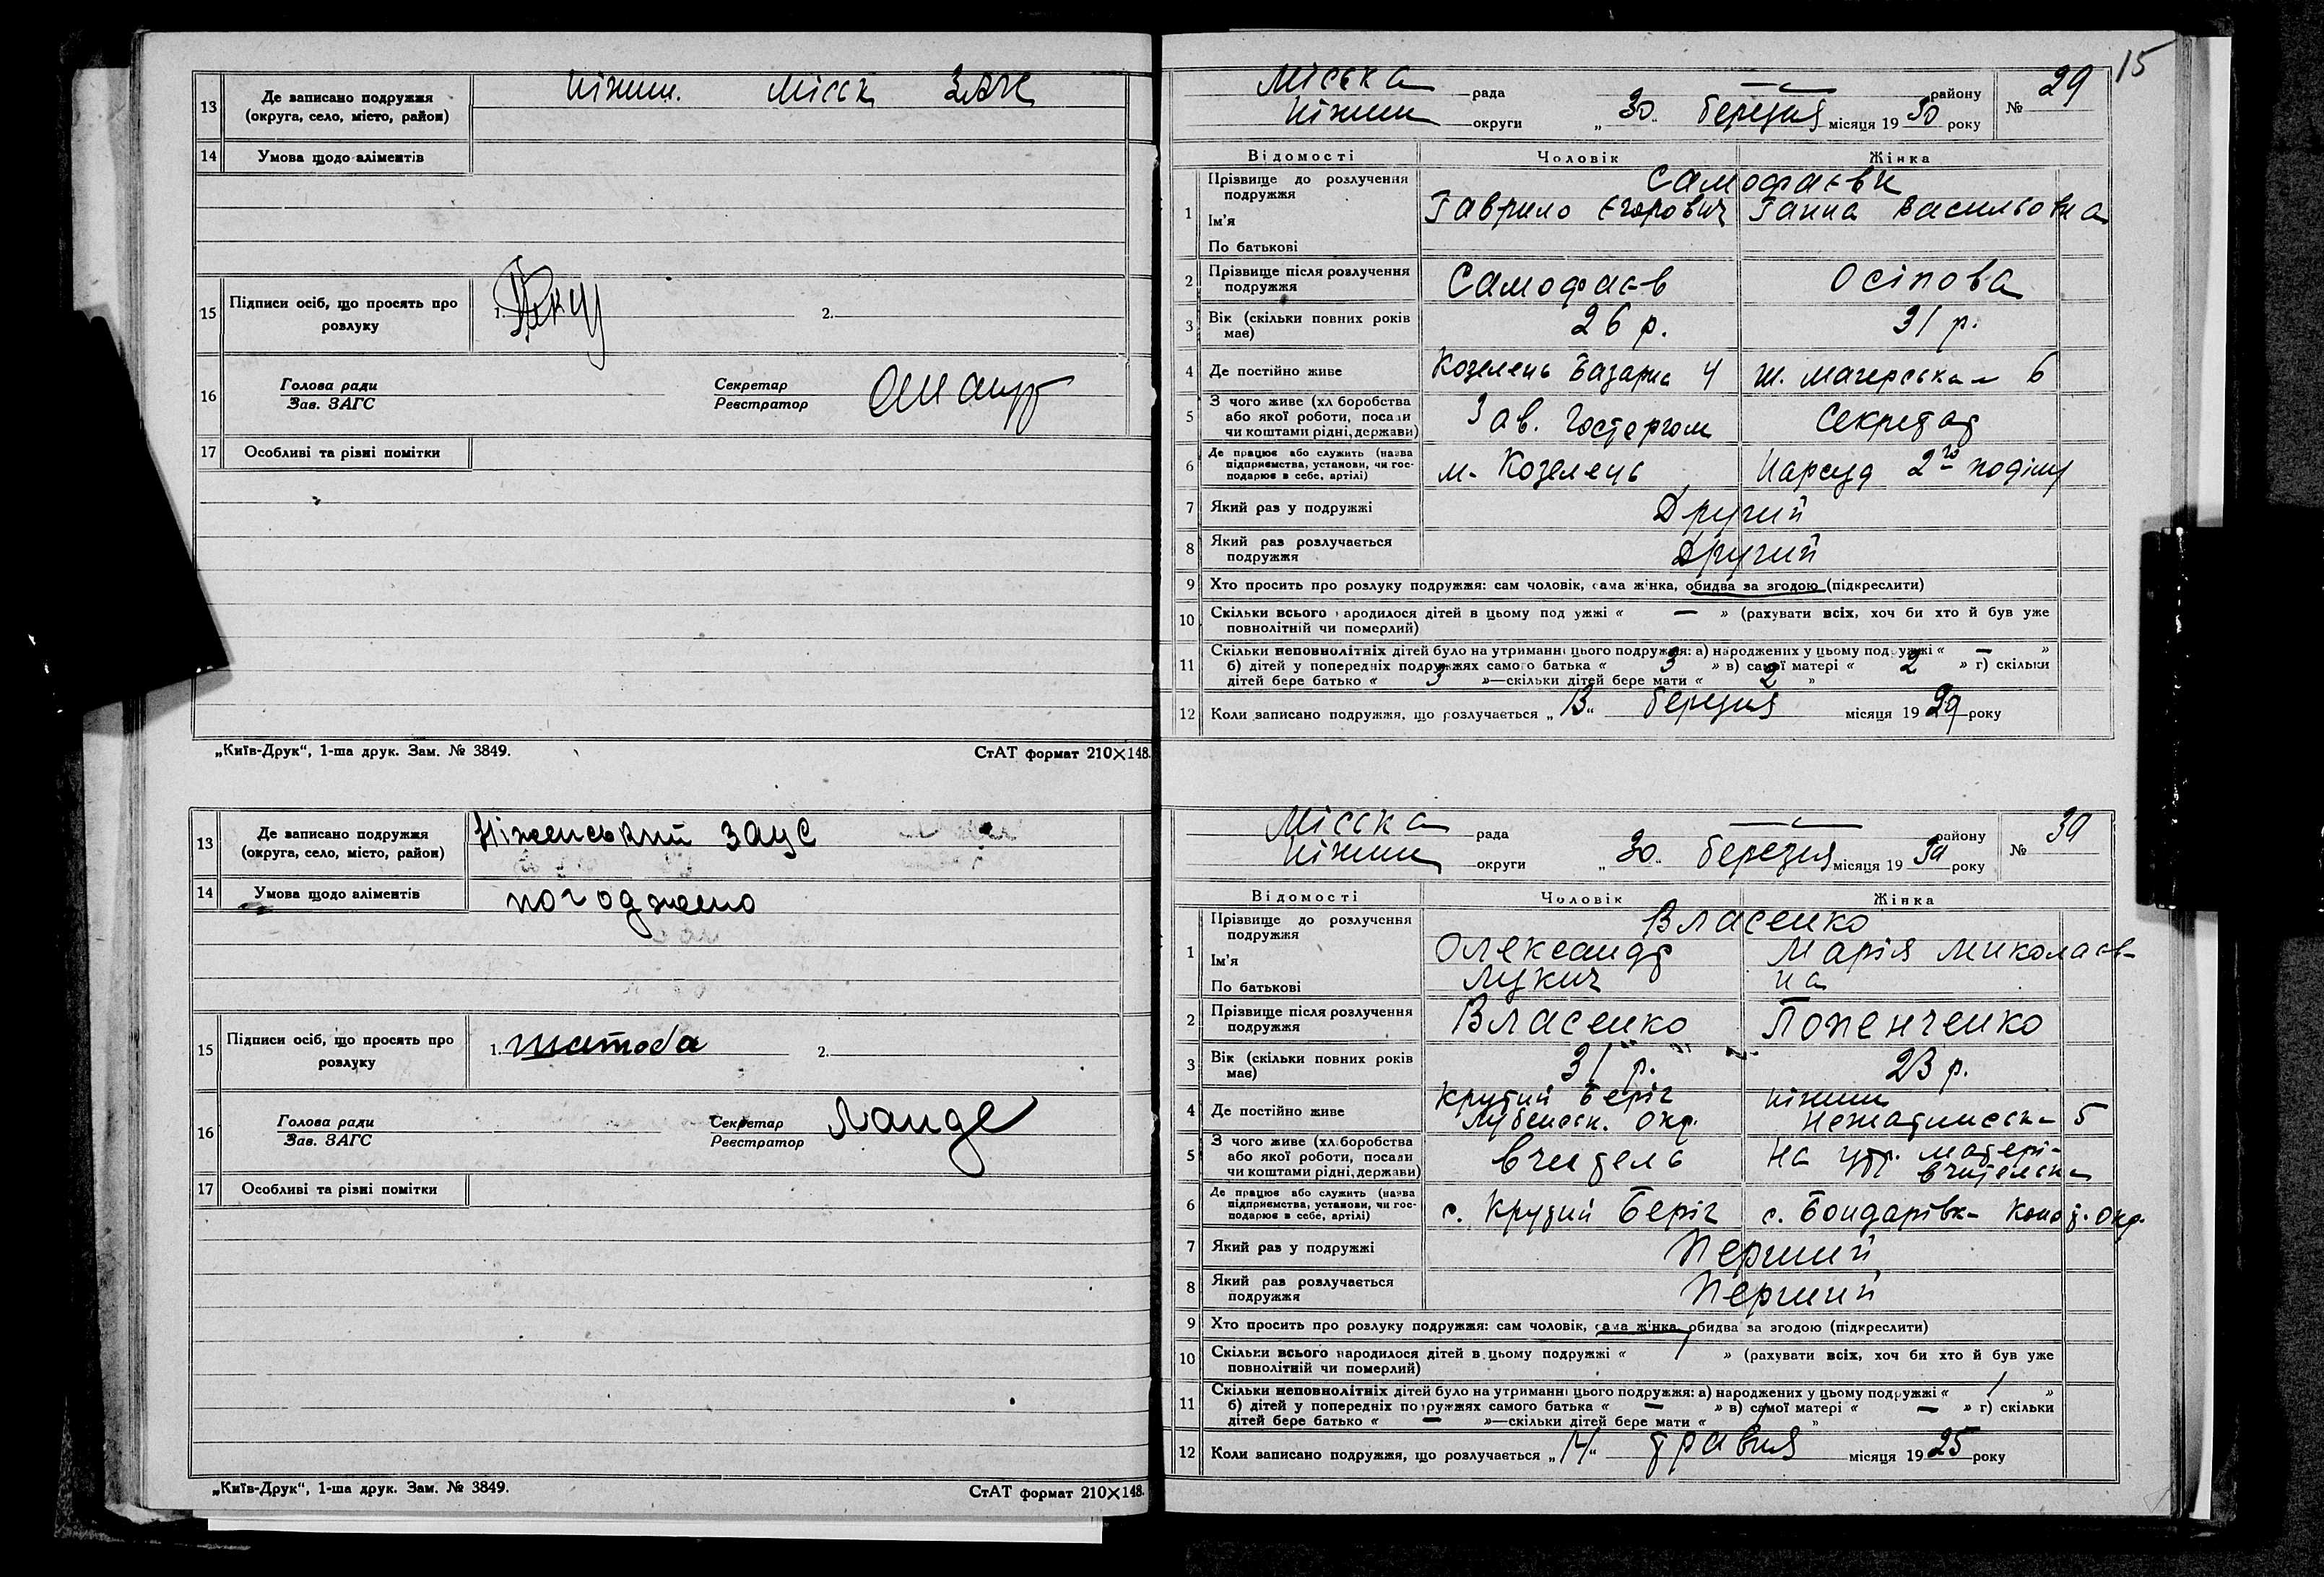 13 Де записано подружжя (округа, село, місто, район) Ніжин. Міськ ЗАГС
14 Умова щодо аліментів
15 Підписи осіб, що просять про розлуку 1. 2.
16 Голова ради Зав. ЗАГС Секретар Реєстратор
17 Особливі та різні помітки
„Київ-Друк“, 1-ша друк. Зам. № 3849. СтАТ формат 210×148.
13 Де записано подружжя (округа, село, місто, район) Ніженський ЗАГС
14 Умова щодо аліментів погоджено
15 Підписи осіб, що просять про розлуку 1. 2.
16 Голова ради Зав. ЗАГС Секретар Реєстратор Ланде
17 Особливі та різні помітки
„Київ-Друк“, 1-ша друк. Зам. № 3849. СтАТ формат 210×148.
15
Міська рада — району № 29
Ніжин округи „30“ березня місяця 1930 року
Відомості Чоловік Жінка
1 Прізвище до розлучення подружжя Самофаєви
Ім'я Гаврило Єгорович Ганна Васильовна
По батькові
2 Прізвище після розлучення подружжя Самофаєв Осіпова
3 Вік (скільки повних років має) 26 р. 31 р.
4 Де постійно живе Козелець Базарна 4 Ш. Магерська 6
5 З чого живе (хліборобства або якої роботи, посади чи коштами рідні, держави) Зав. Госторгом Секретар
6 Де працює або служить (назва підприємства, установи, чи господарює в себе, артілі) м. Козелець Нарсуд 2го поділу
7 Який раз у подружжі Другий
8 Який раз розлучається подружжя Другий
9 Хто просить про розлуку подружжя: сам чоловік, сама жінка, обидва за згодою (підкреслити)
10 Скільки всього народилося дітей в цьому подружжі « — » (рахувати всіх, хоч би хто й був уже повнолітній чи померлий)
11 Скільки неповнолітніх дітей було на утриманні цього подружжя: а) народжених у цьому подружжі « — »
б) дітей у попередніх подружжях самого батька « 3 » в) самої матері « 2 » г) скільки
дітей бере батько « 3 »—скільки дітей бере мати « 2 »
12 Коли записано подружжя, що розлучається „13“ березня місяця 1929 року
Міська рада — району № 30
Ніжин округи „30“ березня місяця 1930 року
Відомості Чоловік Жінка
1 Прізвище до розлучення подружжя Власенко
Ім'я Олександр Марія Миколаєв-
По батькові Лукич на
2 Прізвище після розлучення подружжя Власенко Попенченко
3 Вік (скільки повних років має) 31 р. 23 р.
4 Де постійно живе Крутий Беріг Лубенськ. Окр. Ніжин 5
5 З чого живе (хліборобства або якої роботи, посади чи коштами рідні, держави) вчитель На утр. матері- вчительки
6 Де працює або служить (назва підприємства, установи, чи господарює в себе, артілі) с. Крутий Беріг с. Бондарівка Коног. Окр.
7 Який раз у подружжі Перший
8 Який раз розлучається подружжя Перший
9 Хто просить про розлуку подружжя: сам чоловік, сама жінка, обидва за згодою (підкреслити)
10 Скільки всього народилося дітей в цьому подружжі « 1 » (рахувати всіх, хоч би хто й був уже повнолітній чи померлий)
11 Скільки неповнолітніх дітей було на утриманні цього подружжя: а) народжених у цьому подружжі « 1 »
б) дітей у попередніх подружжях самого батька « — » в) самої матері « — » г) скільки
дітей бере батько « — »—скільки дітей бере мати « 1 »
12 Коли записано подружжя, що розлучається „14“ травня місяця 1925 року